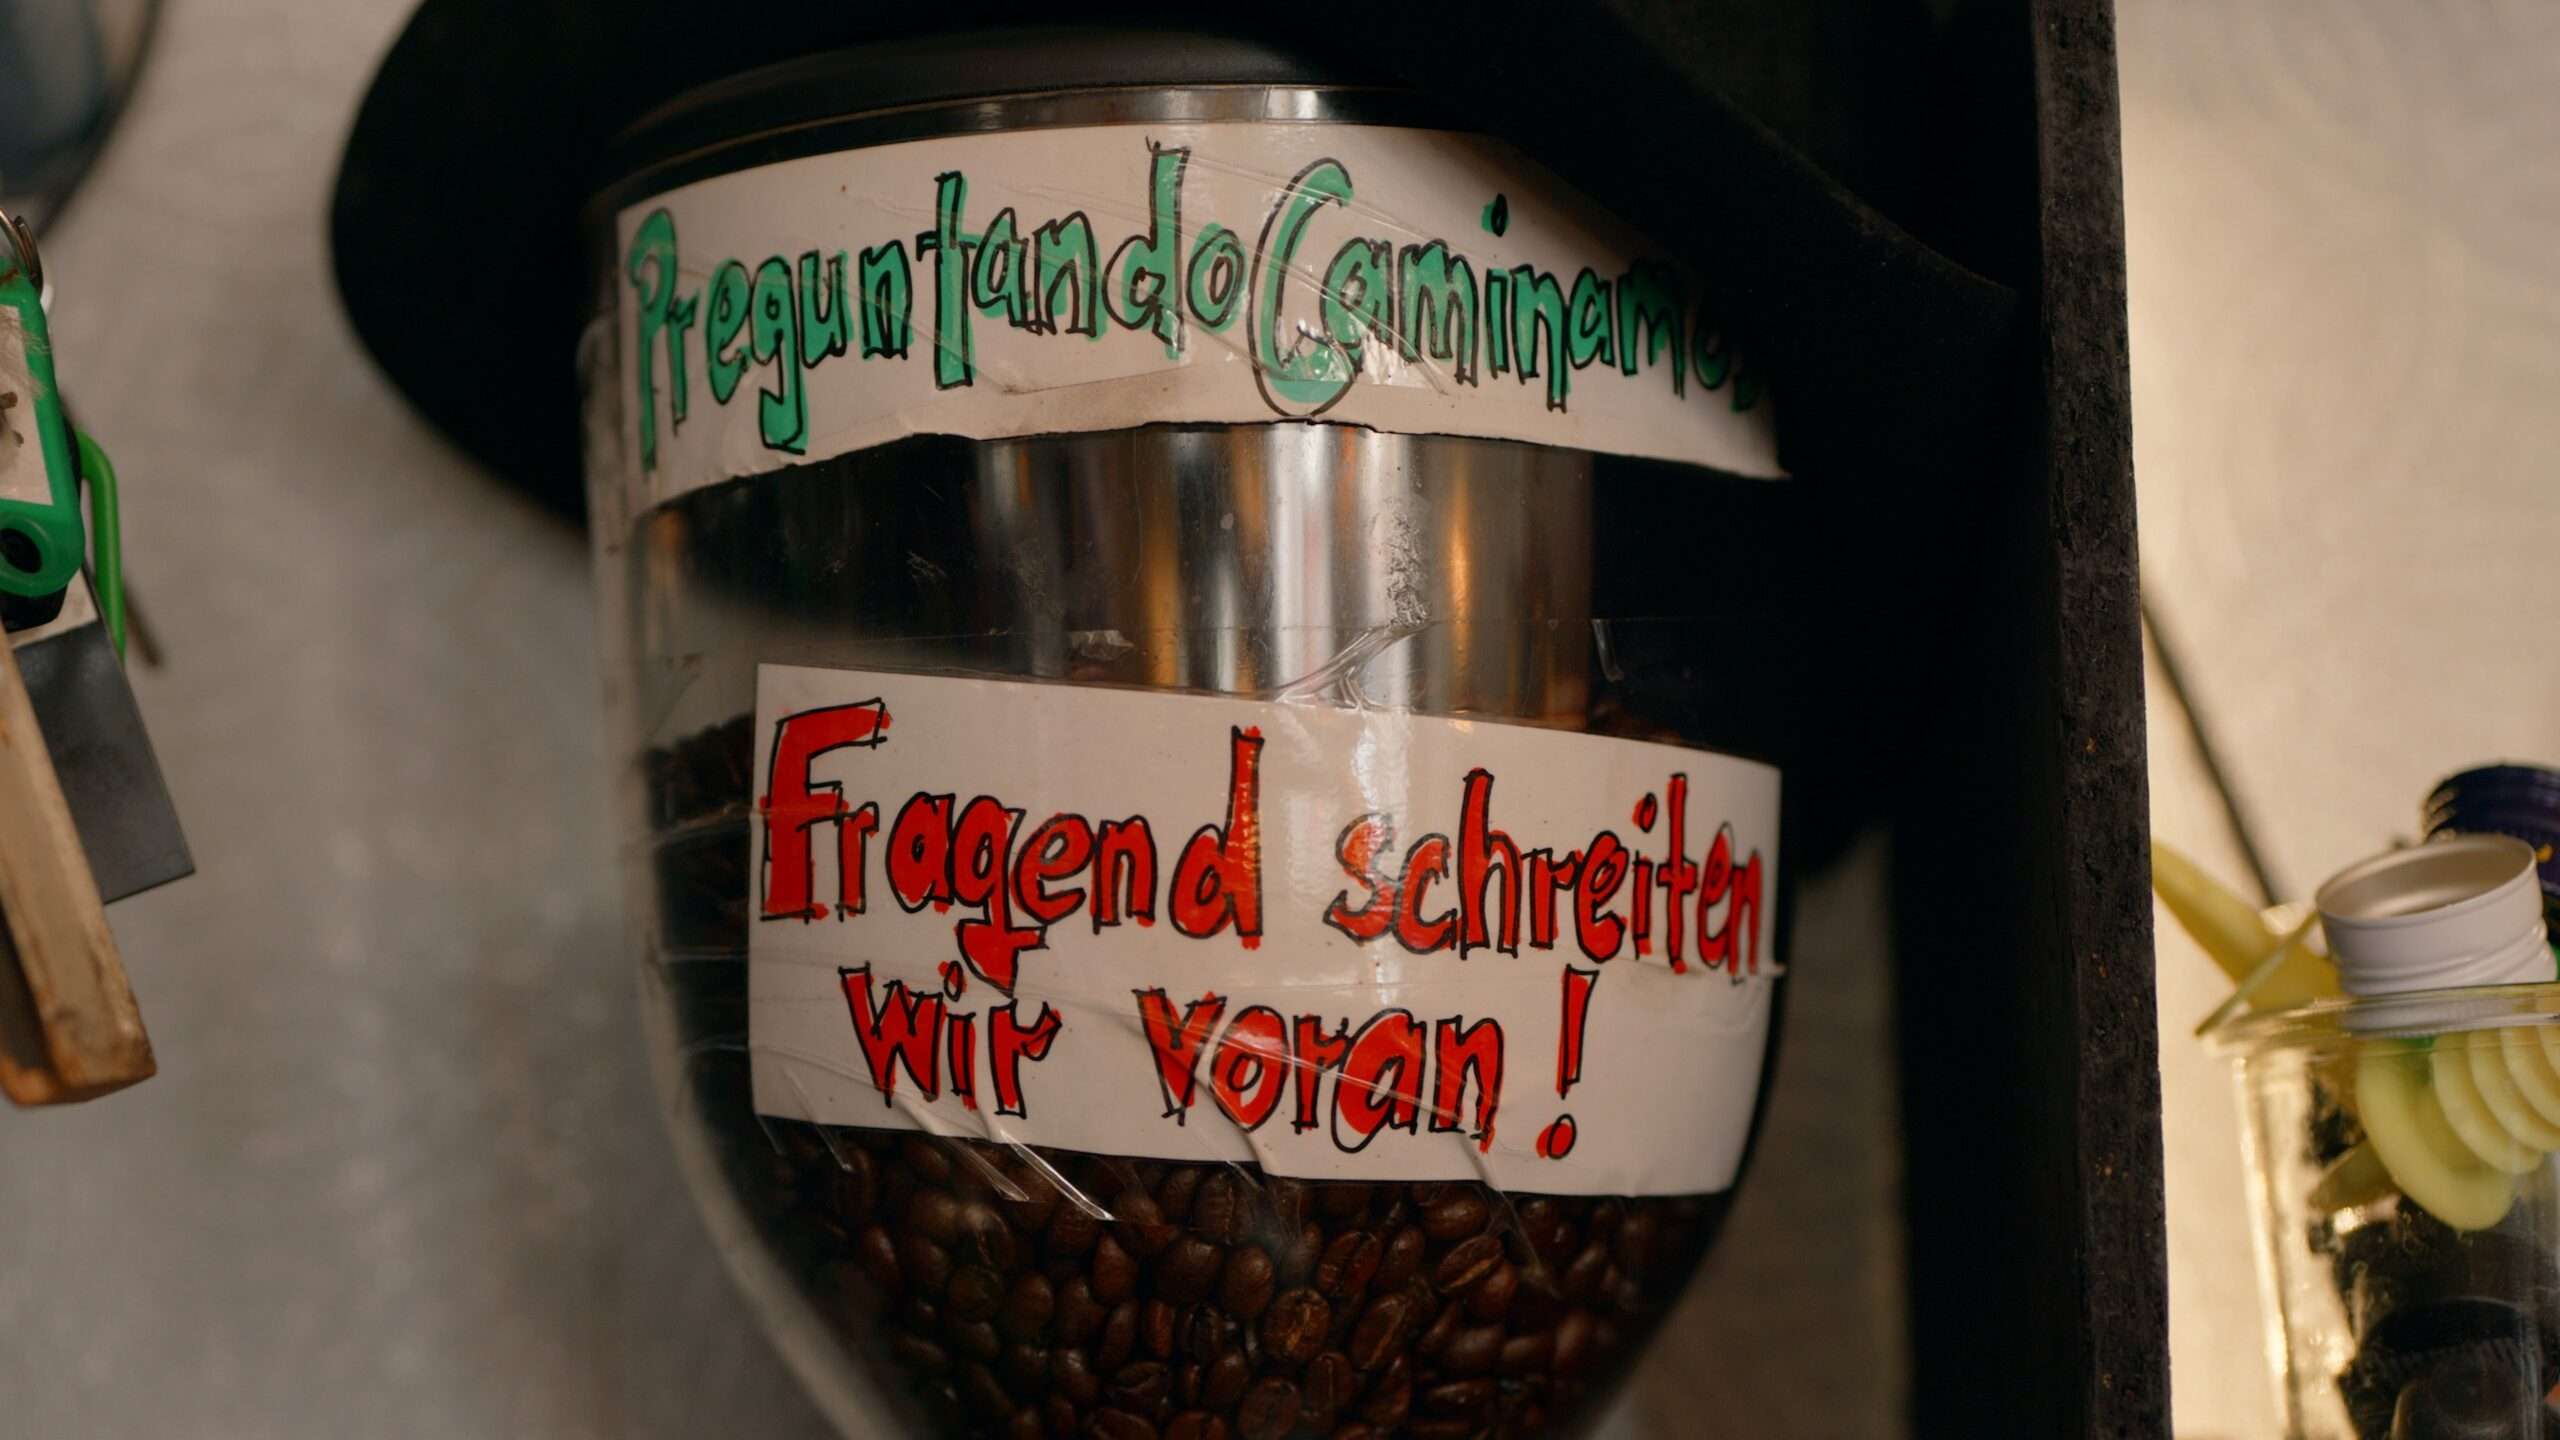 Preguntando Caminamos
Fragend schreiten
wir voran!